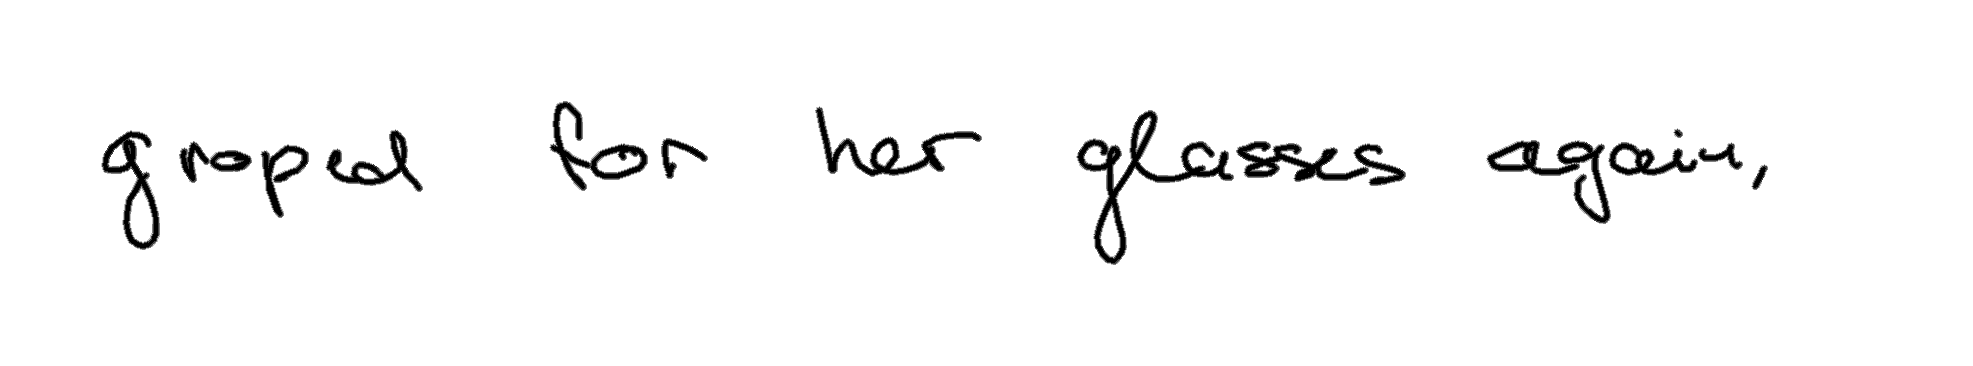 groped for her glasses again,